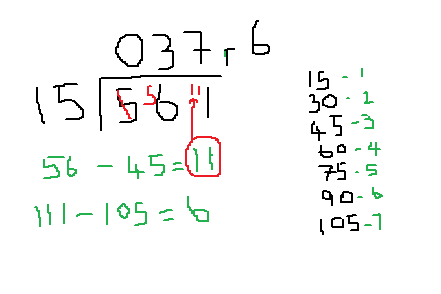 037r6
15 5 ⁵6 ¹¹1
56 - 45 = 11
111 - 105 = 6
15 - 1
30 - 2
45 - 3
60 - 4
75 - 5
90 - 6
105 - 7